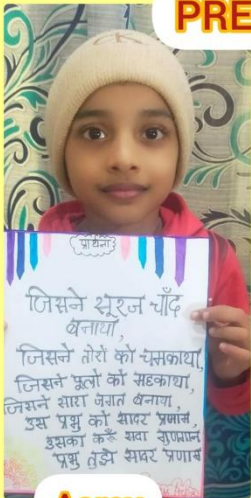 PRE
प्रार्थना
जिसने सूरज चाँद
बनाया,
जिसने तारों को चमकाया,
जिसने फूलों को महकाया,
जिसने सारा जगत बनाया,
उस प्रभु को सादर प्रणाम,
उसका करूँ सदा गुणगान
प्रभु तुझे सादर प्रणाम